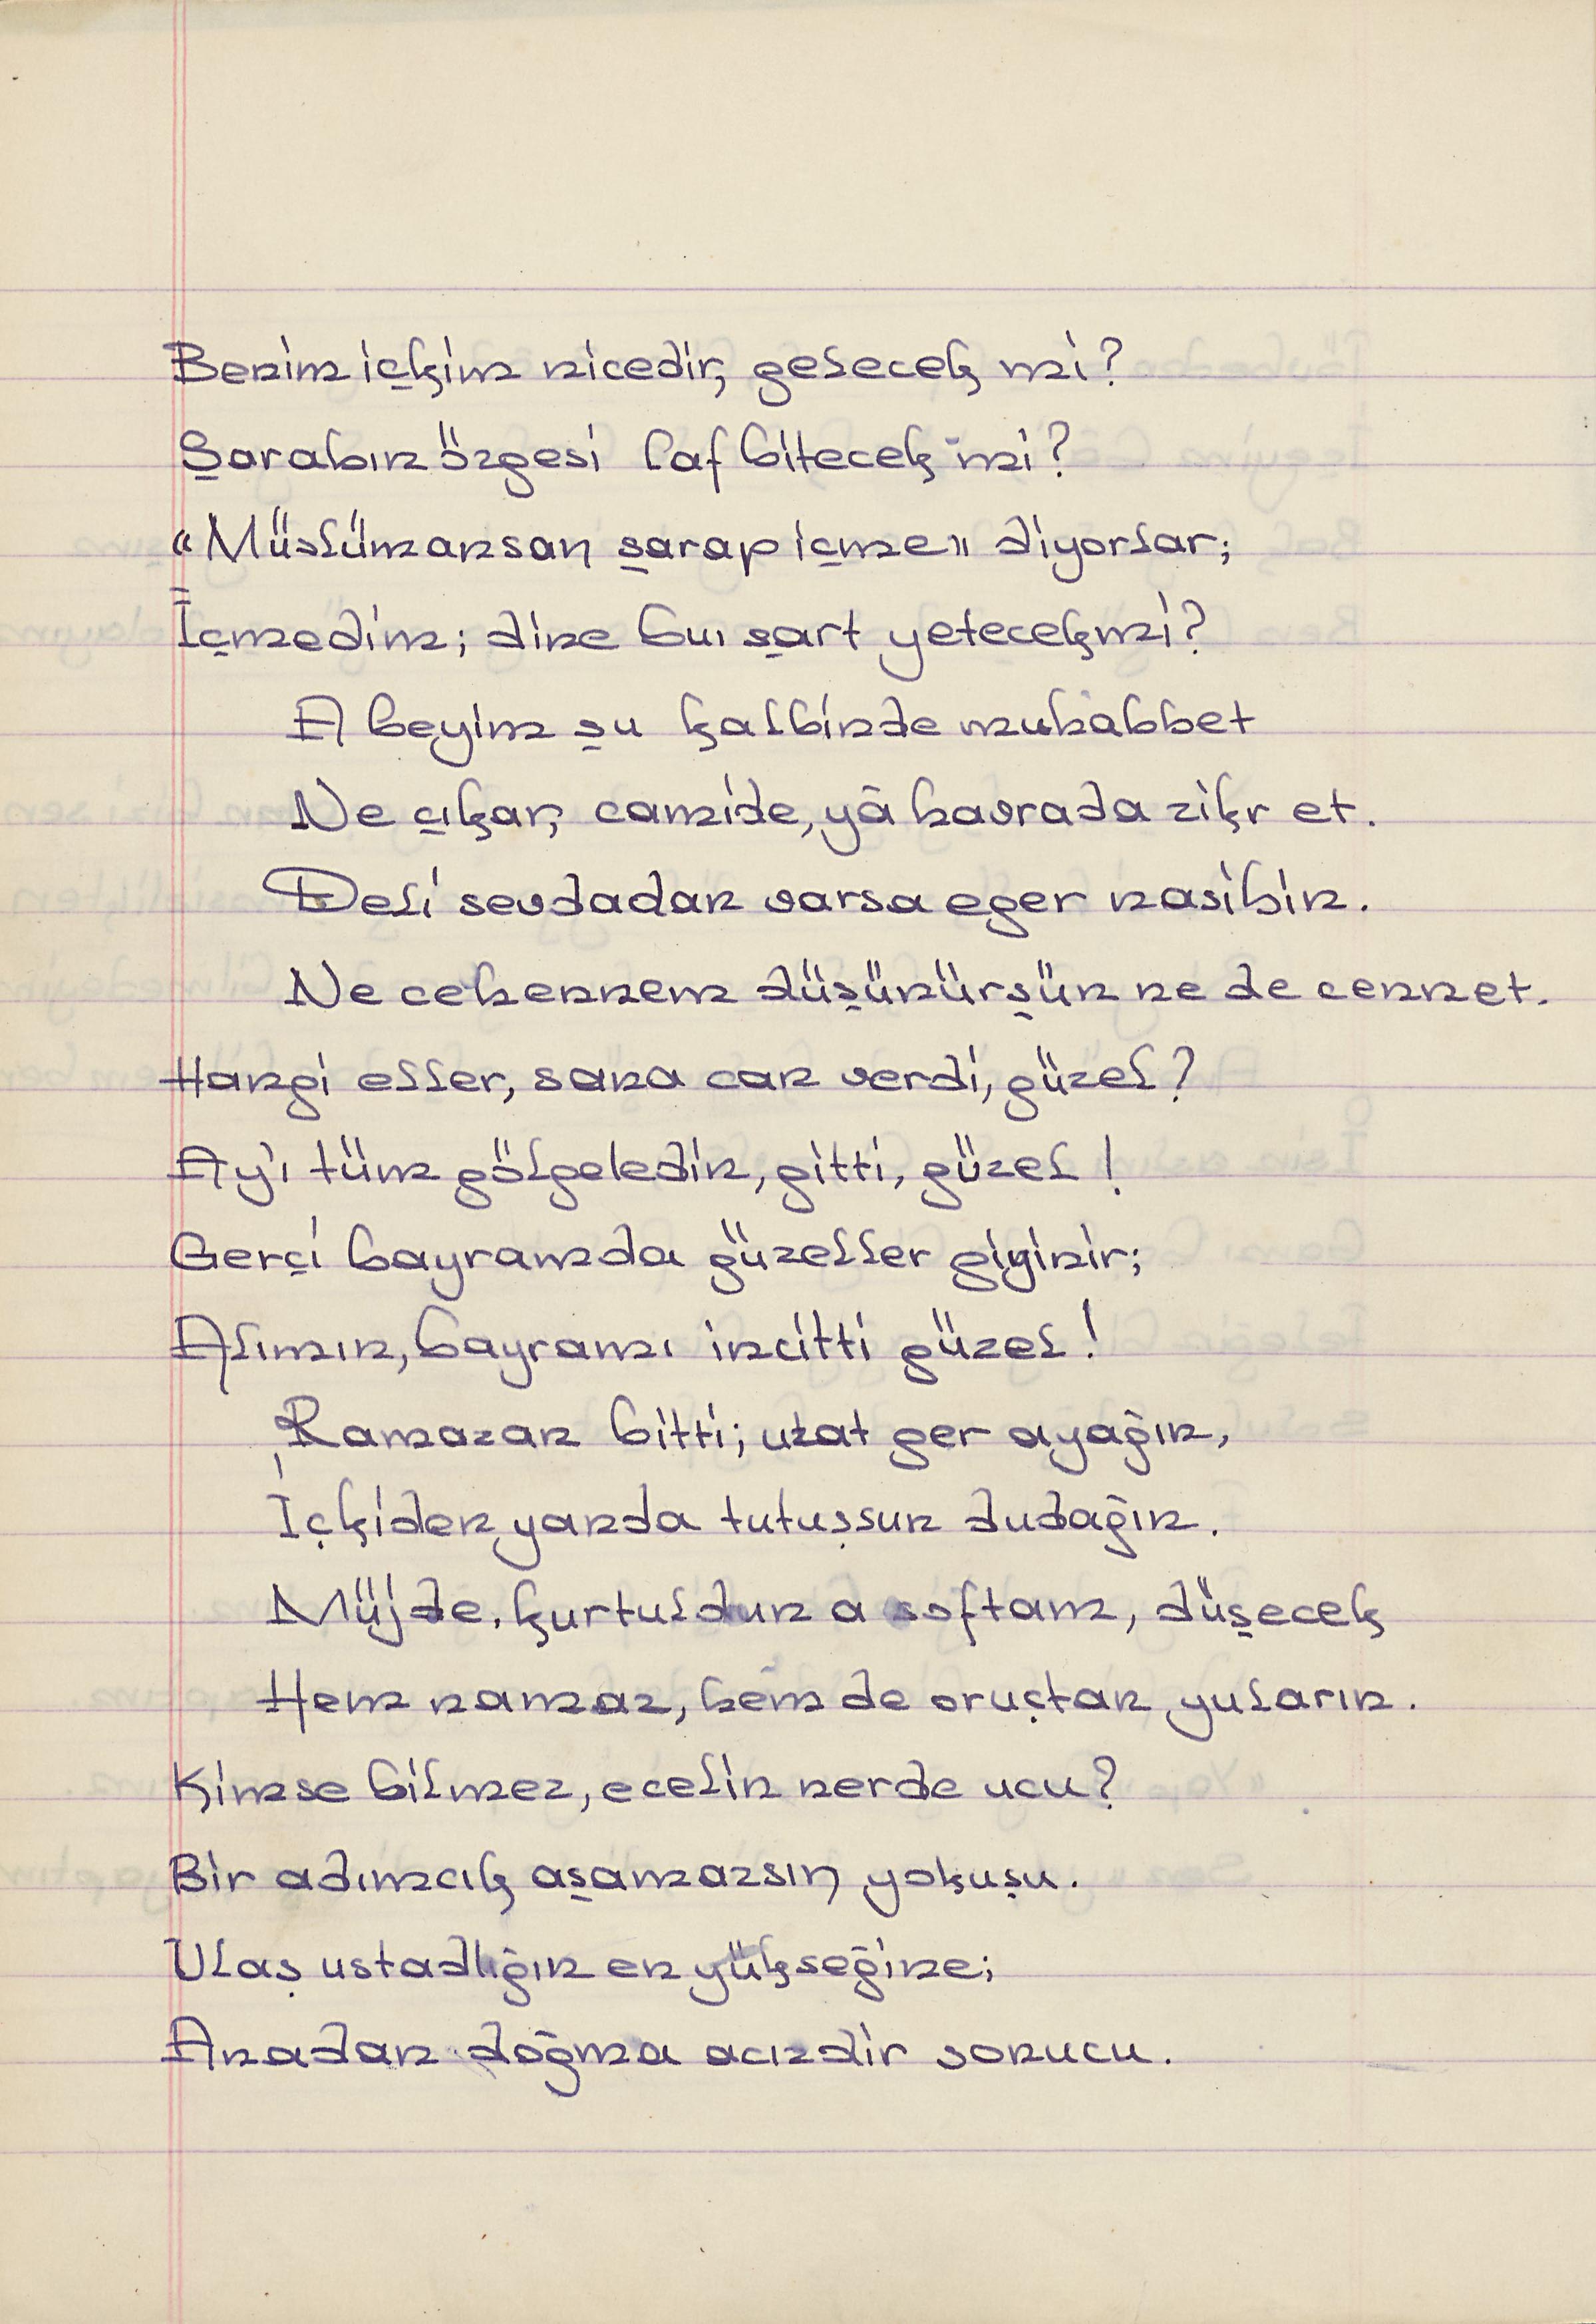 Benim içkim nicedir, gelecek mi?
Şarabın özgesi laf bitecek mi?
«Müslümansan şarap içme» diyorlar;
İçmedim; dine bu şart yetecek mi?
A beyim şu kalbinde muhabbet
Ne çıkar, camide, yâ havrada zikr et.
Deli sevdadan varsa eger nasibin.
Ne cehennem düşünürşün ne de cennet.
Hangi eller, sana can verdi, güzel?
Ay'ı tüm gölgeledin, gitti, güzel!
Gerçi bayramda güzeller giyinir;
Alımın, bayramı incitti güzel!
Ramazan bitti; uzat ger ayağın,
İçkiden yanda tutuşsun dudağın.
Müjde, kurtuldun a softam, düşecek
Hem namaz, hem de oruçtan yuların.
Kimse bilmez, ecelin nerde ucu?
Bir adımcık aşamazsın yokuşu.
Ulaş ustadlığın en yükseğine;
Anadan doğma acızdir sonucu.